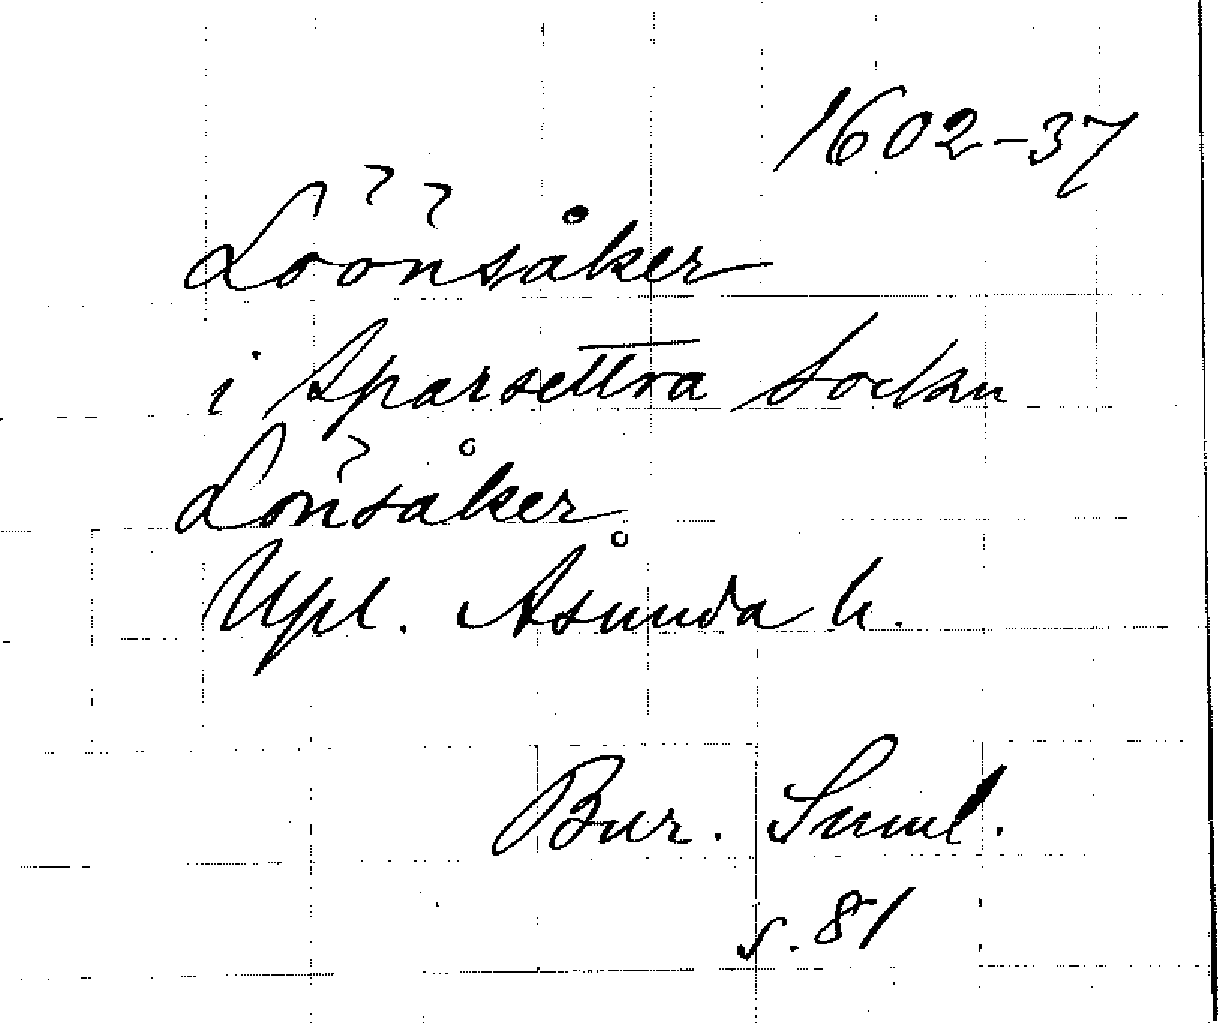 1602-37
Löönsåker
i Sparsettra Sockn
Lönsåker
Upl. Åsunda h.
Bur. Suml.
s. 81